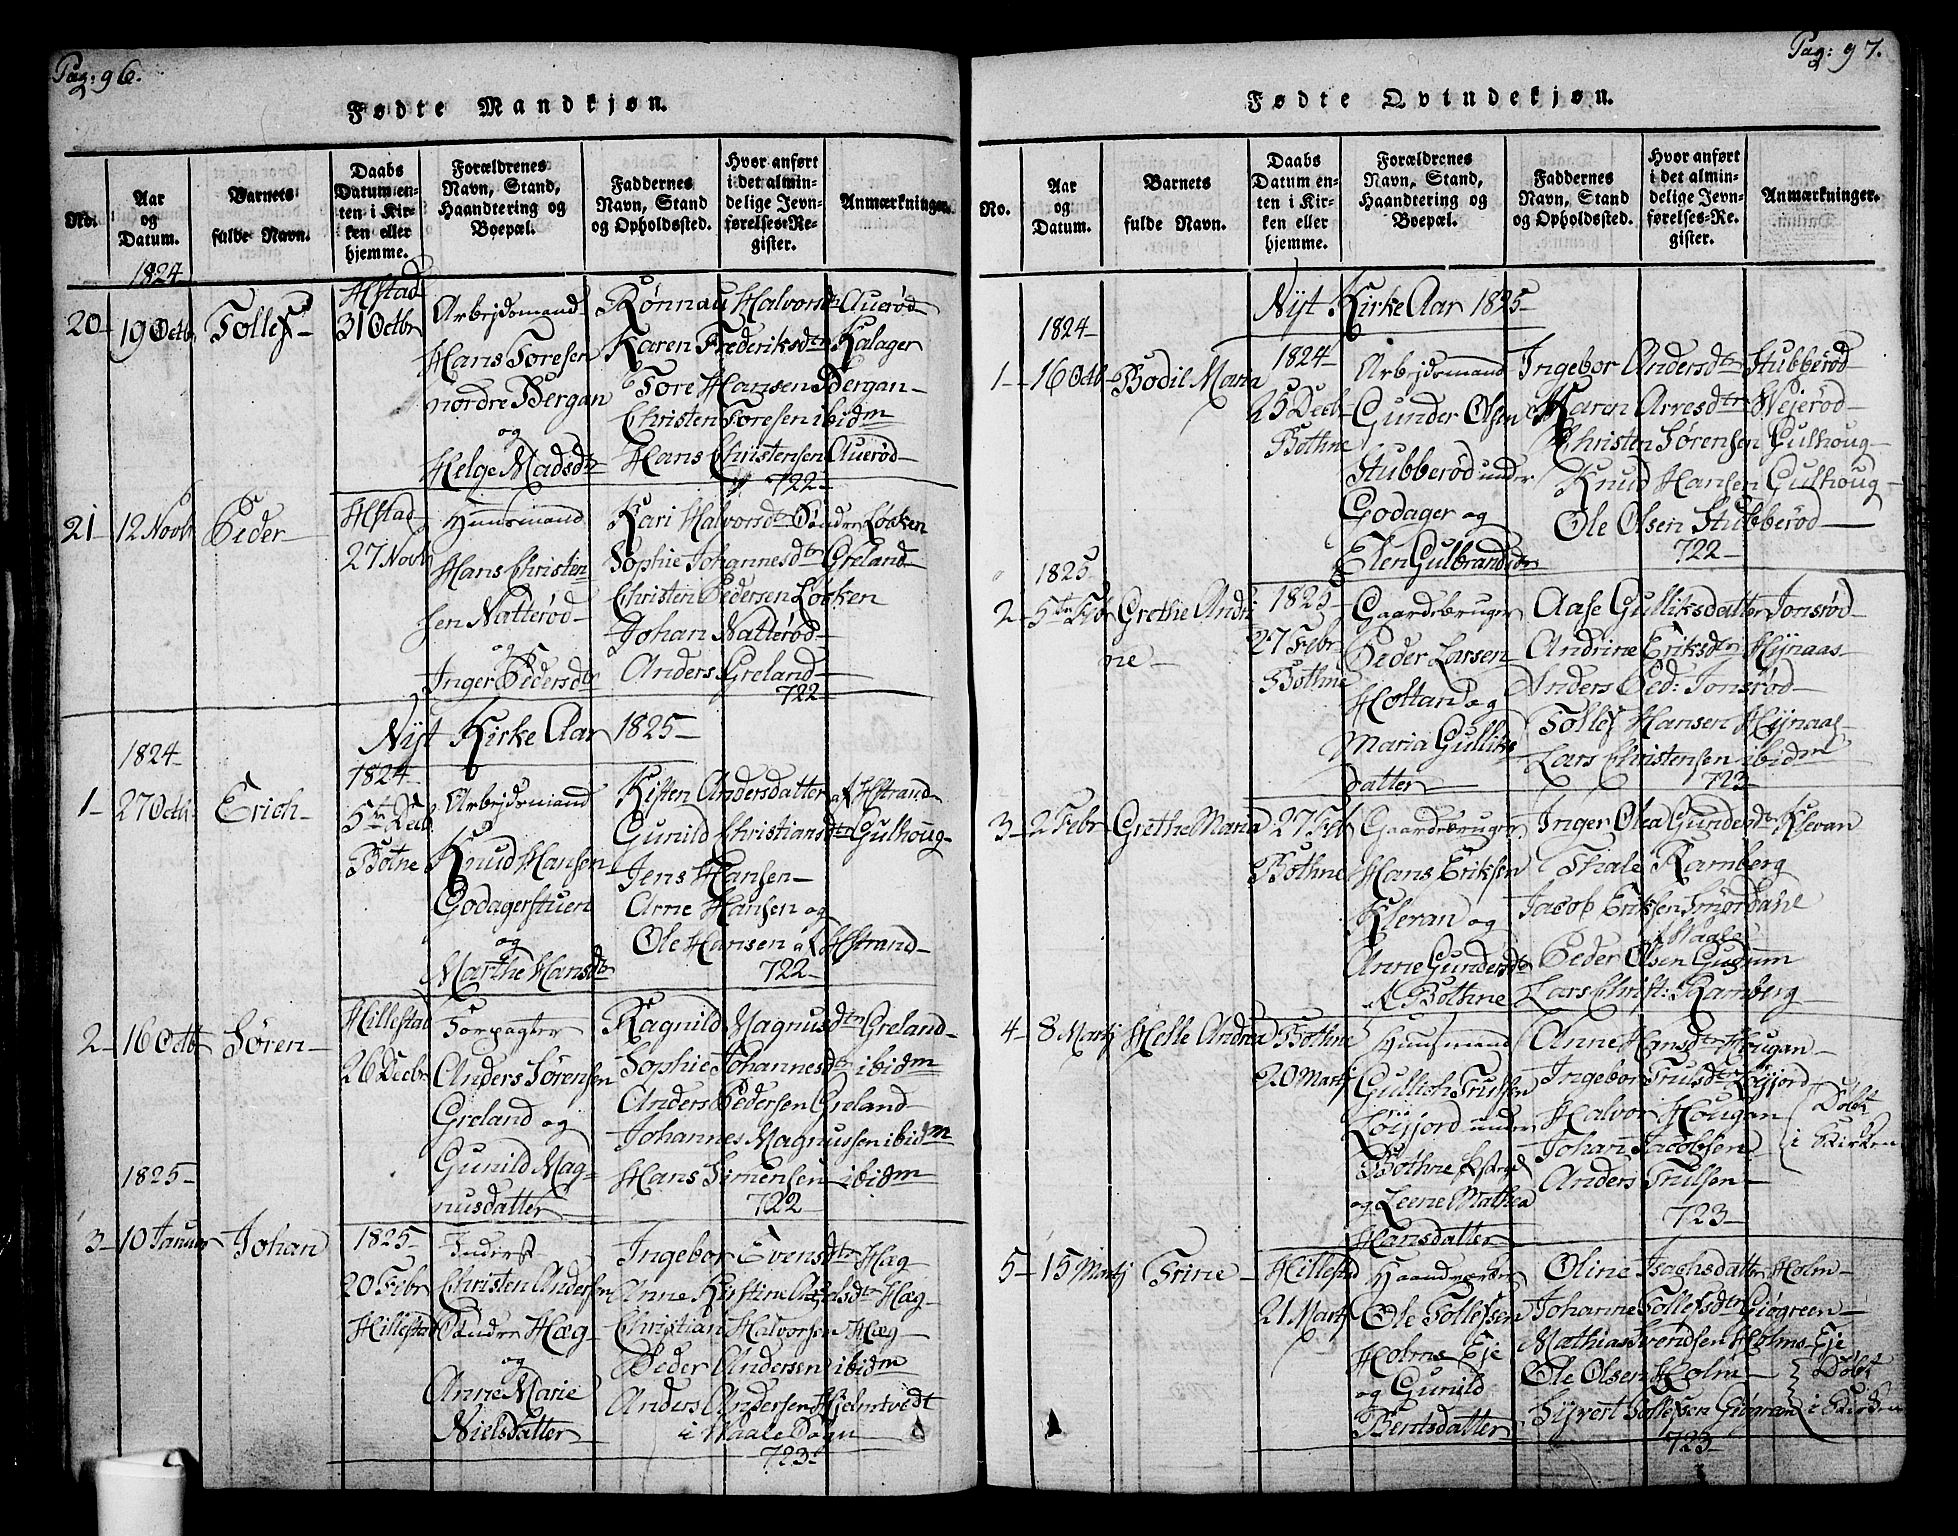 Pag: 96.
Fødte Mandkjøn.
No.
Aar og Datum.
Barnets fulde Navn.
Daabs Datum enten i Kirken eller hjemme.
Forældrenes Navn, Stand, Haandtering og Boepæl.
Faddernes Navn, Stand og Opholdssted.
Hvor anført i det almindelige Jevnførelses-Register.
Anmærkninger.
1824
20 19 Octb Tollef
Hfstad 31 Octbr
Arbejdsmand
Hans Toresen
nordre Bergan
og
Helge Madsdtr
Rønnau Halvorsdtr Auerød
Karen Frederiksdtr Kalager
Tore Hansen Bergan
Christen Toresen ibidm
Hans Christensen Auerød
722
21 12 Novb Peder
Hfstad
27 Novb
Huusmand
Hans Christensen Natterød
og
Inger Pedersdtr
Kari Halvorsdtr Søndre Løkken
Sophie Johannesdtr Greland
Christen Pedersen Løkken
Johan Natterød
Anders Greland
722
Nyt Kirke Aar 1825
1824
1 27 Octb Erich
1824
5te Decb
Botne
Arbejdsmand
Knud Hansen
Godagerstuen
og
Marthe Hansdtr
Kisten Andersdatter af Hstrand
Gunild Christiansdtr Gulhoug
Jens Hansen
Arne Hansen og
Ole Hansen af Hstrand
722
2 16 Octb Søren
Hillestad
26 Decbr
Forpagter
Anders Sørensen
Greland og
Gunild Magnusdatter
Ragnild Magnusdtr Greland
Sophie Johannesdtr ibidm
Anders Pedersen Greland
Johannes Magnussen ibidm
Hans Simensen ibidm
722
1825
3 10 Januar Johan
1825
20 Febr
Hillestad
Inderst
Christen Andersen
Søndre Hæg
og
Anne Marie
Nielsdatter
Ingebor Evensdtr Hæg
Anne Kirstine dtr Hæg
Christian Halvorsen Hæg
Peder Andersen ibidm
Anders Andersen Hjelmtvedt
i Vaale Sogn
723
Pag: 97.
Fødte Qvindekjøn.
No.
Aar og Datum.
Barnets fulde Navn.
Daabs Datum enten i Kirken eller hjemme.
Forældrenes Navn, Stand, Haandtering og Boepæl.
Faddernes Navn, Stand og Opholdssted.
Hvor anført i det almindelige Jevnførelses-Register.
Anmærkninger.
Nyt Kirke Aar 1825
1824
1 16 Octb Bodil Maria
1824
25 Decb
Bothne
Arbejdsmand
Gunder Olsen
Stubberød under
Godager og
Elen Gulbrandsdtr
Ingebor Andersdtr Stubberød
Karen Arresdtr Wejerød
Christen Sørensen Gulhoug
Knud Hansen Gulhoug
Ole Olsen Stubberød
722
1825
2 5te Feb Grethe Andrine
1825
27 Febr
Bothne
Gaardebruger
Peder Larsen
Holtan og
Maria Gulliksdatter
Aase Gulliksdatter Jonsrød
Andrine Eriksdtr Hynaas
Anders Ped: Jonsrød
Tollef Hansen Hynaas
Lars Christensen ibidm
723
3 2 Febr Grethe Maria
27 Feb
Bothne
Gaardebruger
Hans Eriksen
Klevan og
Anne Gundersdtr
af Bothne
Inger Olea Gundersdtr Klevan
Thale Ramberg
Jacob Eriksen Smørdahl
i Vaale
Peder Olsen Gugum
Lars Christ: Ramberg
4 8 Martj Helle Andrea
Bothne
20 Martj
Huusmand
Gullich Trulsen
Løyjord under
Bothne
og Leene Mathea
Hansdatter
Anne Hansdtr Hougan
Ingebor Trulsdtr Løyjord
Halvor Hougan
Johan Jacobsen
Anders Trulsen
723
Døbt
i Kirken
5 15 Martj Trine
Hillestad
21 Martj
Haandværker
Ole Tollefsen
Holms Eje
og Gunild
Bentsdatter
Oline Isachsdatter Holm
Johanne Tollefsdtr Giøgreen
Mathias Svendsen Holms Eje
Ole Olsen Holm
Syvert Tollefsen Giøgreen
723
Døbt
i Kirken